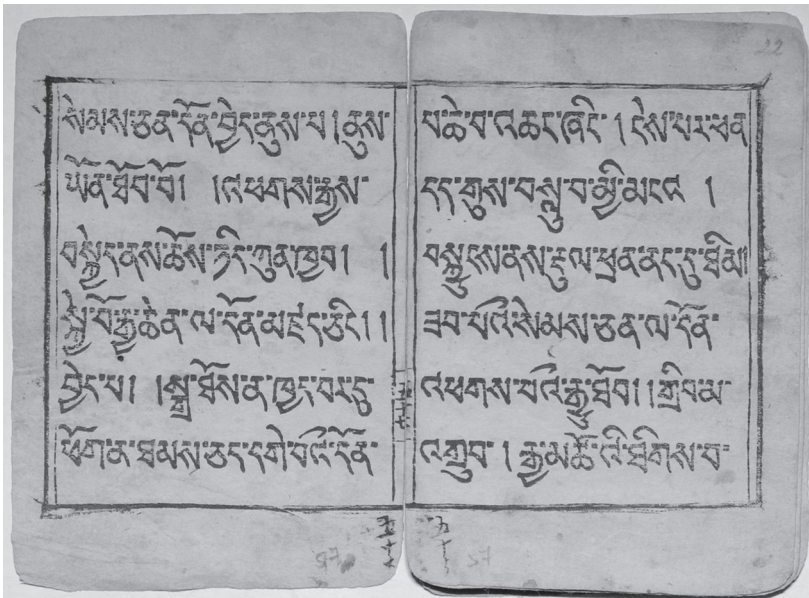 སེམས་ཅན་དོན་བྱེད་ནུས་པ། ནུས་
ཡོན་ཐོབ་བོ། །འཕགས་རྒྱས་
ནས་ཆོས་ཉིད་ཀུན་ཁྱབ། །
སྐྱེ་བོ་རྒྱ་ཆེན་ལ་དོན་མཛད་ཅིང། །
བྱེད་པ། །སྒྲ་ཐོས་ན་ཁྱད་བར་དུ་
ཕོག་ན་ཐམས་ཅད་དགེ་བའི་དོན་
བ་ཆེ་བ་འཆང་ཞིང་། ངེས་པར་ཕན་
དད་གུས་བསླུ་བ་མྱི་མངའ །
ནས་རྡུལ་ཕྲན་ནང་དུ་ཐིམ།
ཟབ་པའི་སེམས་ཅན་ལ་དོན་
འཕགས་པའི་རྒྱུ་ཐོབ། །གྲིབ་མ་
འགྲུབ། རྒྱ་མཚོའི་ཐིགས་བ་